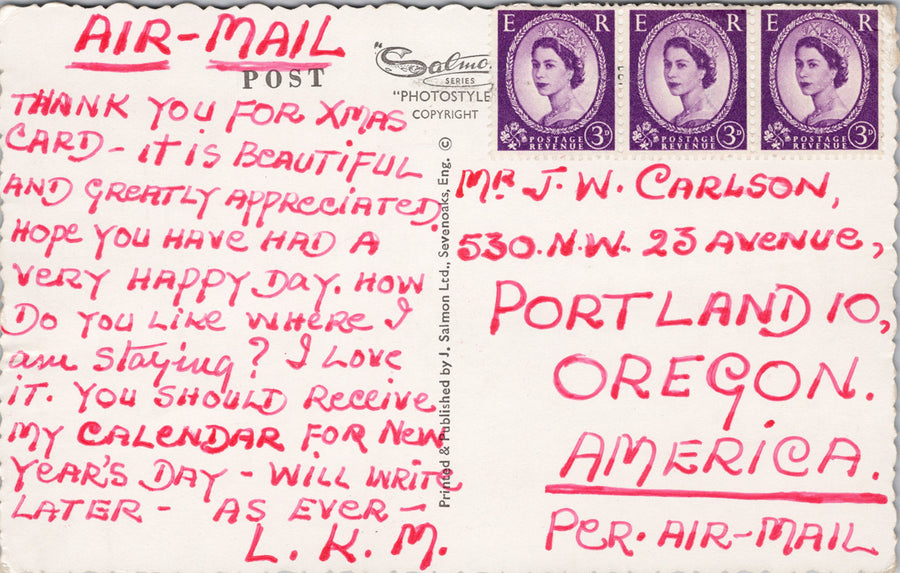 AIR-MAIL
POST
"Salmo
SERIES
"PHOTOSTYLE
COPYRIGHT
THANK YOU FOR XMAS
CARD - IT IS BEAUTIFUL
AND GREATLY APPRECIATED.
HOPE YOU HAVE HAD A
VERY HAPPY DAY. HOW
DO YOU LIKE WHERE I
am staying? I LOVE
IT. YOU SHOULD RECEIVE
MY CALENDAR FOR NEW
YEAR'S DAY - WILL WRITE
LATER - AS EVER -
L. K. M.
Printed & Published by J. Salmon Ltd., Sevenoaks, Eng. ©
E R
POSTAGE
REVENUE
3D
E R
POSTAGE
REVENUE
3D
E R
POSTAGE
REVENUE
3D
MR J. W. CARLSON,
530. N.W. 23 AVENUE,
PORTLAND 10,
OREGON.
AMERICA.
PER. AIR-MAIL